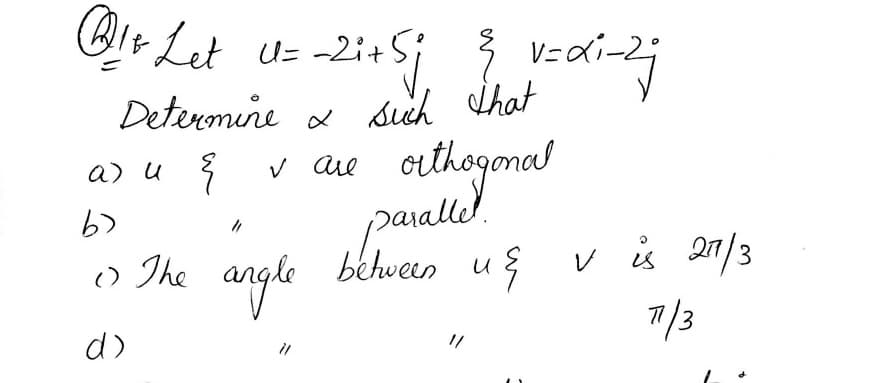 Q1:- Let u = -2i+5j & v=αi-2j
Determine α such that
a) u & v are orthogonal
b) " parallel.
c) The angle between u & v is 2π/3
d) " " π/3